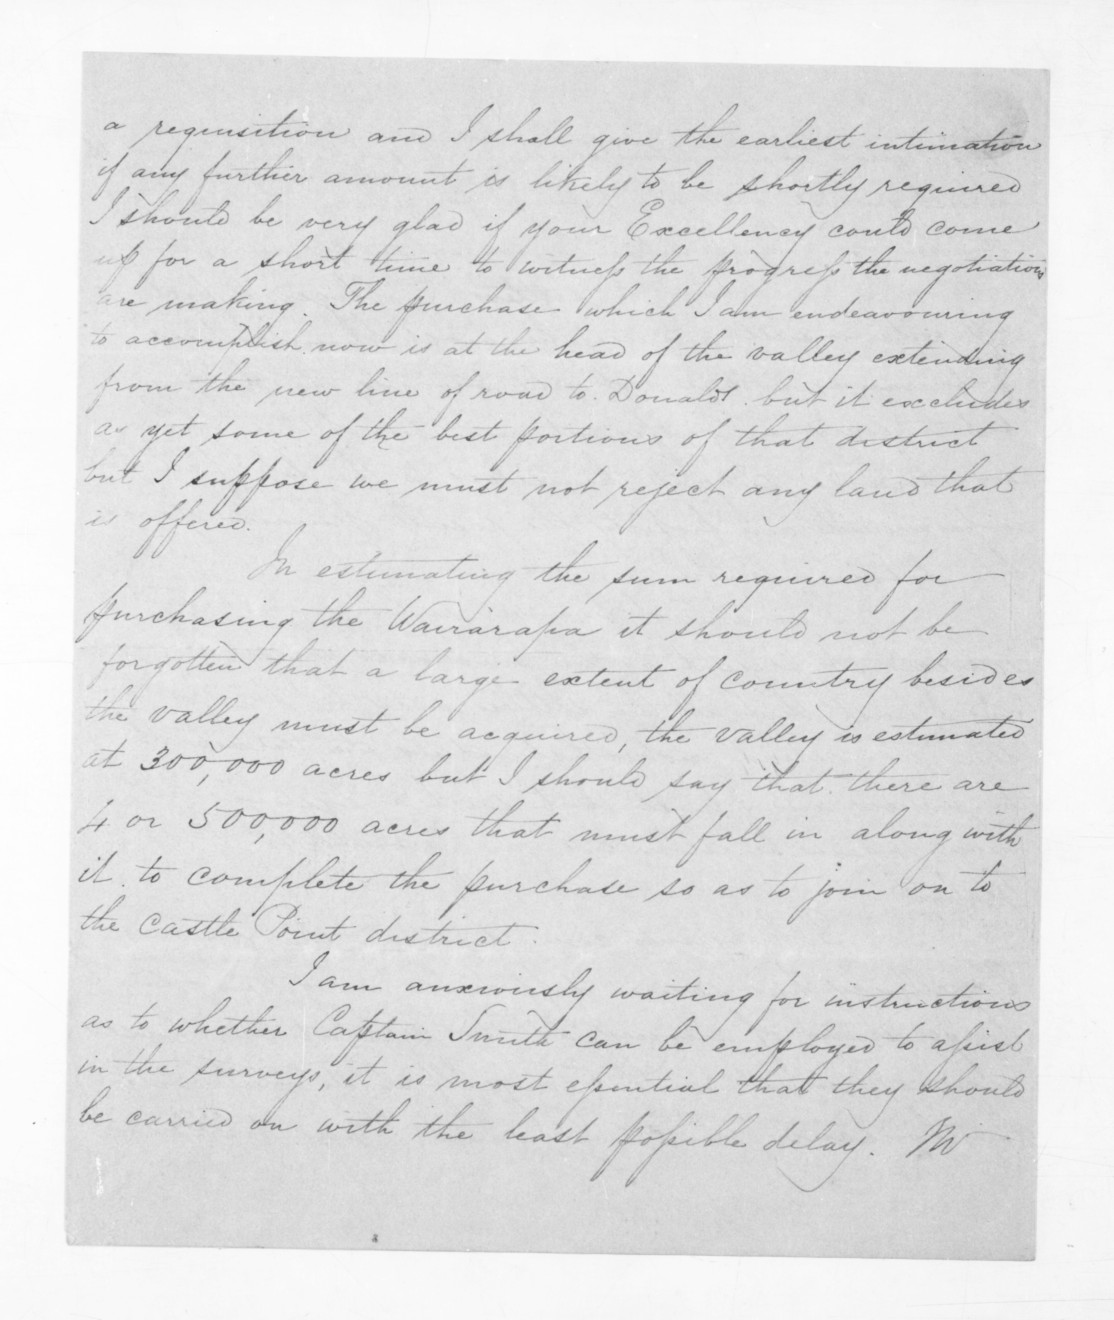 a requisition and I shall give the earliest intimation
if any further amount is likely to be shortly required
I should be very glad if your Excellency could come
up for a short time to witness the progress the negotiations
are making. The purchase which I am endeavouring
to accomplish now is at the head of the valley extending
from the new line of road to Donalds but it excludes
as yet some of the best portions of that district
but I suppose we must not reject any land that
is offered.
In estimating the sum required for
purchasing the Wairarapa it should not be
forgotten that a large extent of country besides
the valley must be acquired, the valley is estimated
at 300,000 acres but I should say that there are
4 or 500,000 acres that must fall in along with
it to complete the purchase so as to join on to
the Castle Point district.
I am anxiously waiting for instructions
as to whether Captain Smith can be employed to assist
in the surveys, it is most essential that they should
be carried on with the least possible delay.